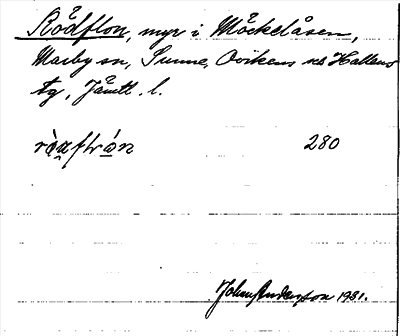 Rödflon, myr i Möckelåsen,
Marby sn, Sunne, Ovikens o Hallens
tg, Jämtl. l.
280
John Andersson 1931.